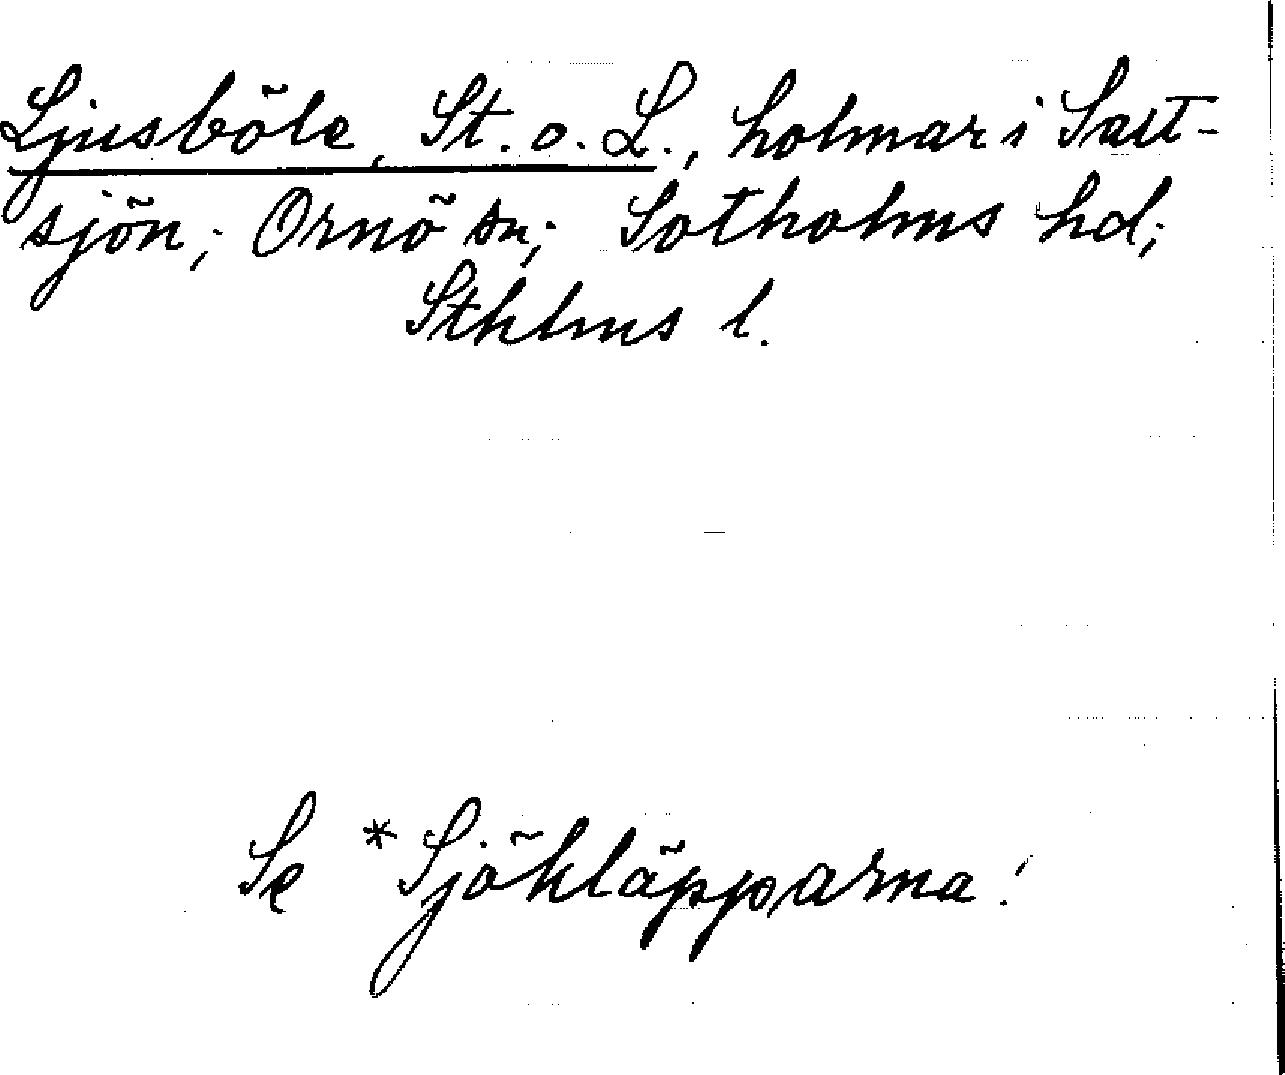 Ljusböle, St. o. L., holmar i Salt-
sjön; Ornö sn; Sotholms hd;
Sthlms l.
Se *Sjökläpparna!